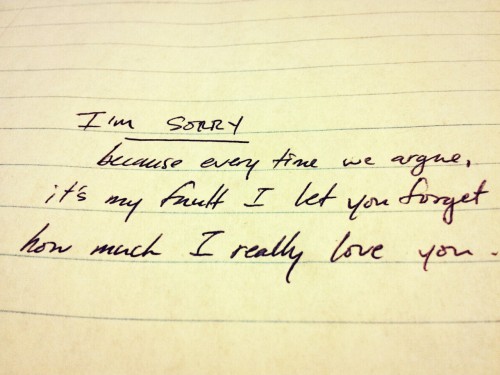 I'm SORRY
because every time we argue,
it's my fault I let you forget
how much I really love you.